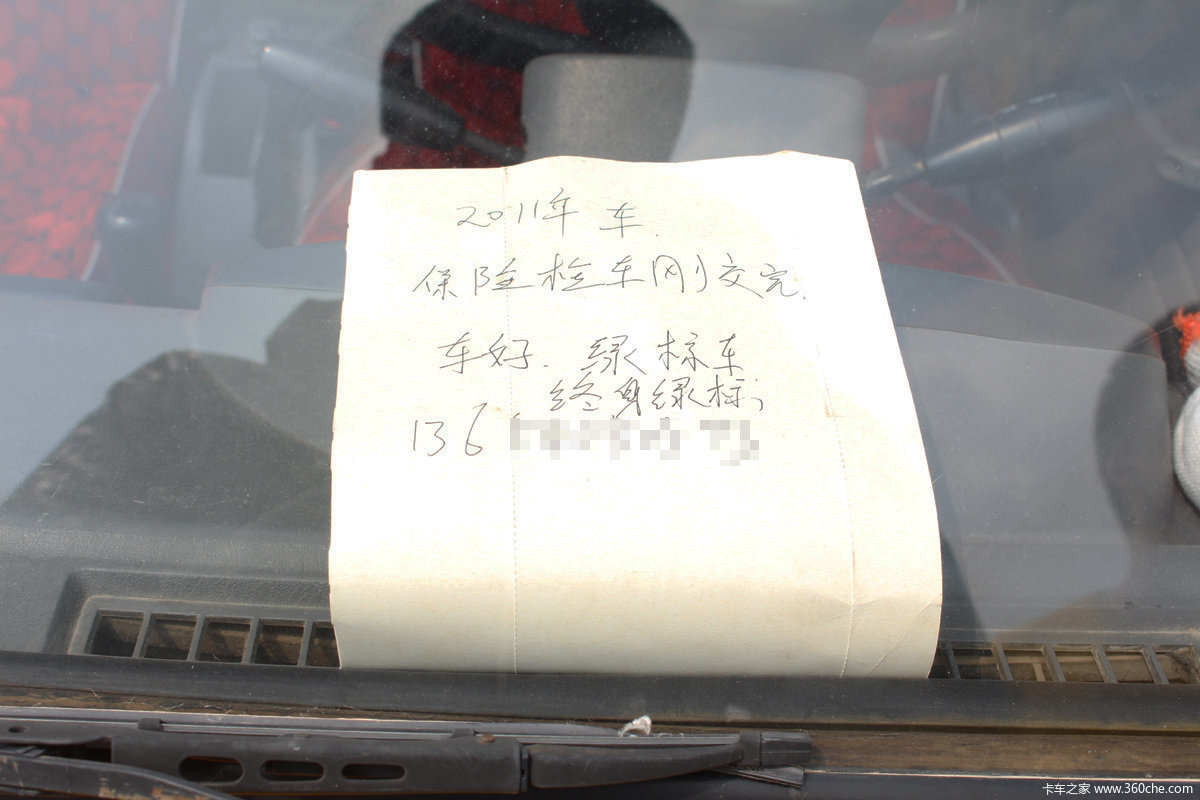 2011年 车.
保险检车刚交完.
车好. 绿标车
终身绿标;
136
卡车之家 www.360che.com